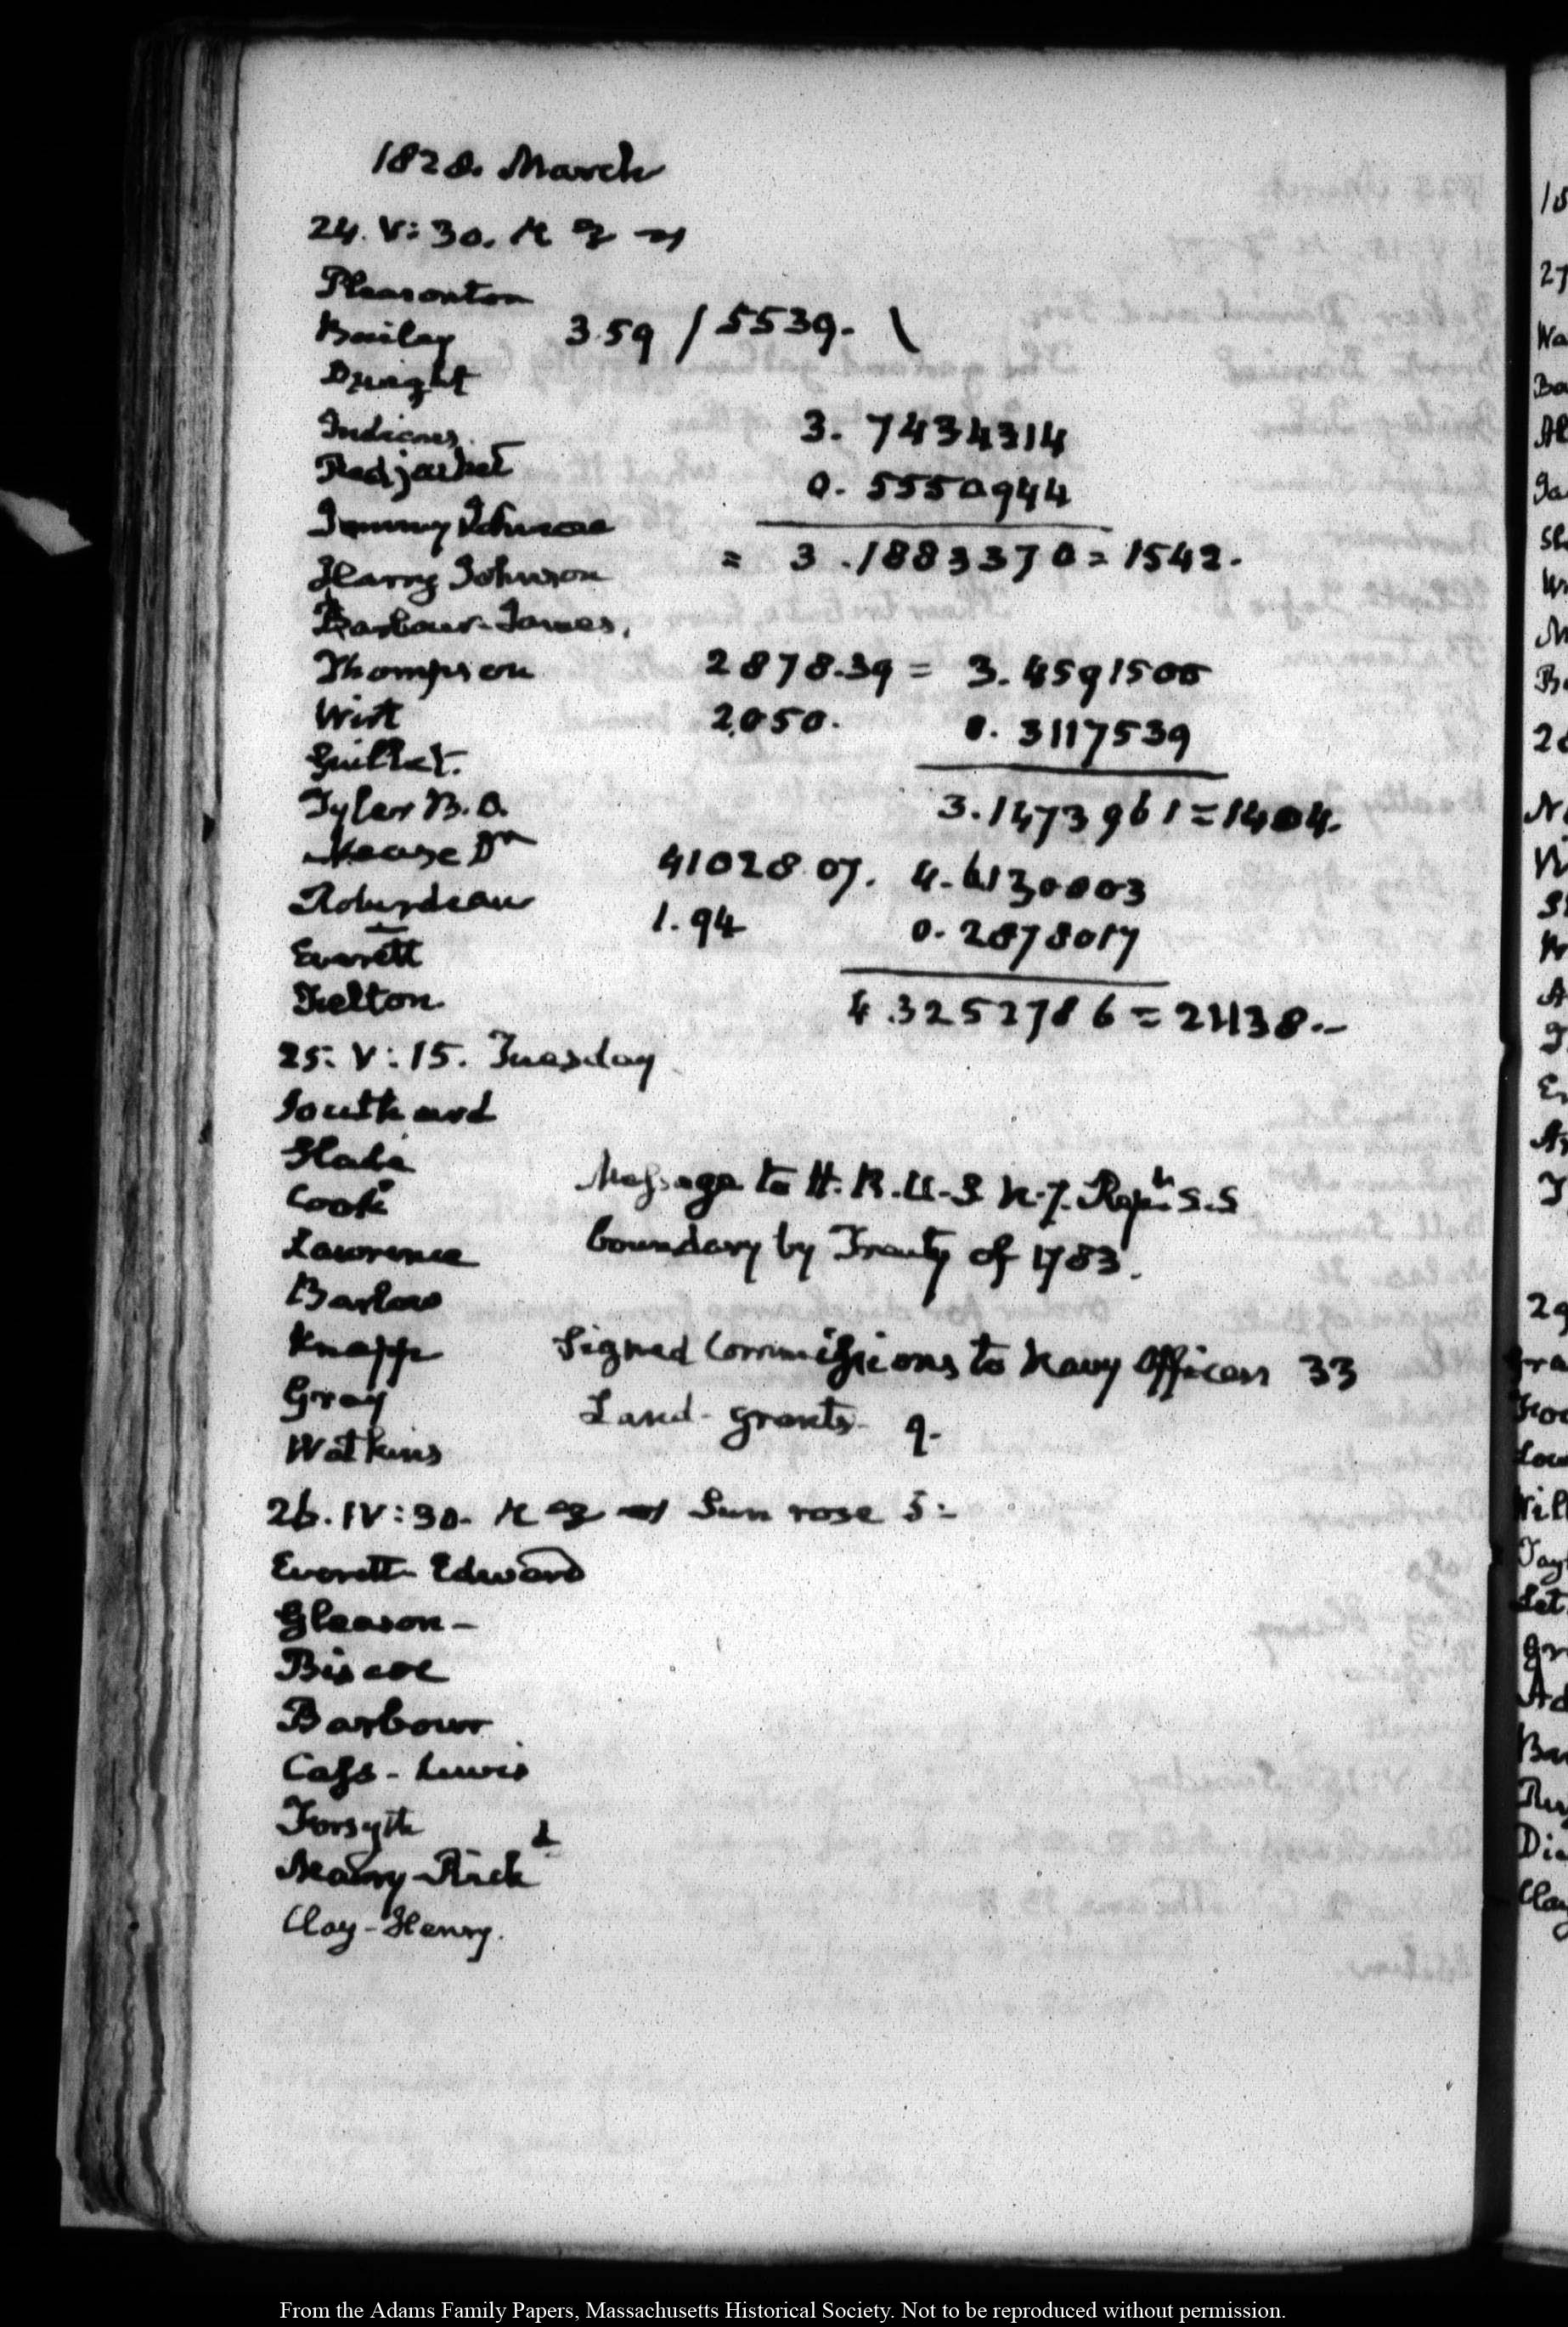 1828. March
24. V: 30.
Pleasonton
Bailey 3.59 / 5539. \
Dwight
Indians. 3. 7434314
Redjacket 0. 5550944
Jemmy Johnson
= 3.1883370 = 1542.
Harry Johnson
Barbour-James.
Thompson 2878.39 = 3.4591500
Wirt 2.050. 0. 3117539
Tyler B.O. 3.1473961 = 1404.
Mease Dr 41028.07. 4.6130003
Roberdeau 1.94 0.2878017
Everett
Felton. 4.3252786 = 21138.-
25: V: 15. Tuesday
Southard
Message to H. R. U.S
Cook
boundary by Treaty of 1783.
Lawrence
Barlow
Knapp Signed Commissions to Navy Officers 33
Gray Land-grants 9.
Watkins
26. IV: 30. Sun rose 5:
Everett-Edward
Gleason-
Biscoe
Barbour
Cass-Lewis
Forsyth
Clay-Henry.
18
27
Wa
Ba
Al
From the Adams Family Papers, Massachusetts Historical Society. Not to be reproduced without permission.